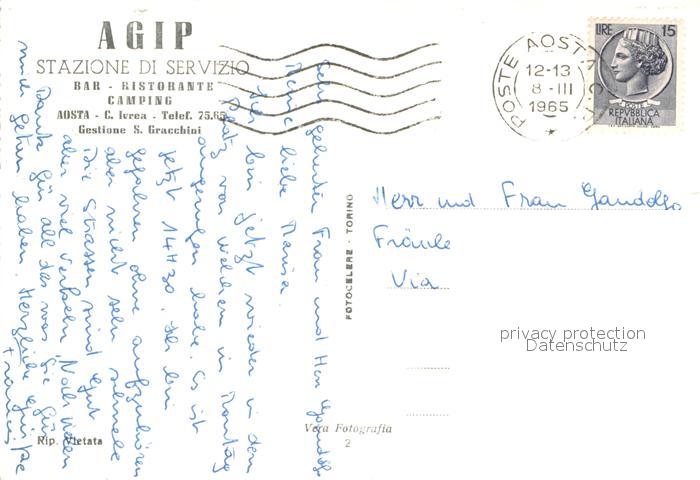 AGIP
STAZIONE DI SERVIZIO
BAR - RISTORANTE
CAMPING
AOSTA - C. Ivrea - Telef. 75.65
Gestione S. Gracchini
POSTE AOSTA
12-13
8 - III
1965
LIRE 15
POSTE
REPVBBLICA
ITALIANA
Sehr geehrter Frau und Herr Gandolfo
liebe Marisa.
Ich bin jetzt wieder in dem
Platz von welchem in Montag
angerufen habe. Es ist
jetzt 14H30. Ich bin
gefahren ohne aufzuhören
aber nicht sehr schnell
Die Strassen sind gut
aber viel Verkehr. Nochvielen
Dank für all das was Sie für
mich getan haben. Herzliche Grüsse
FOTOCELERE - TORINO
Herr und Frau Gandolfo
Fräulein
Via
privacy protection
Datenschutz
Rip. Vietata
Vera Fotografia
2